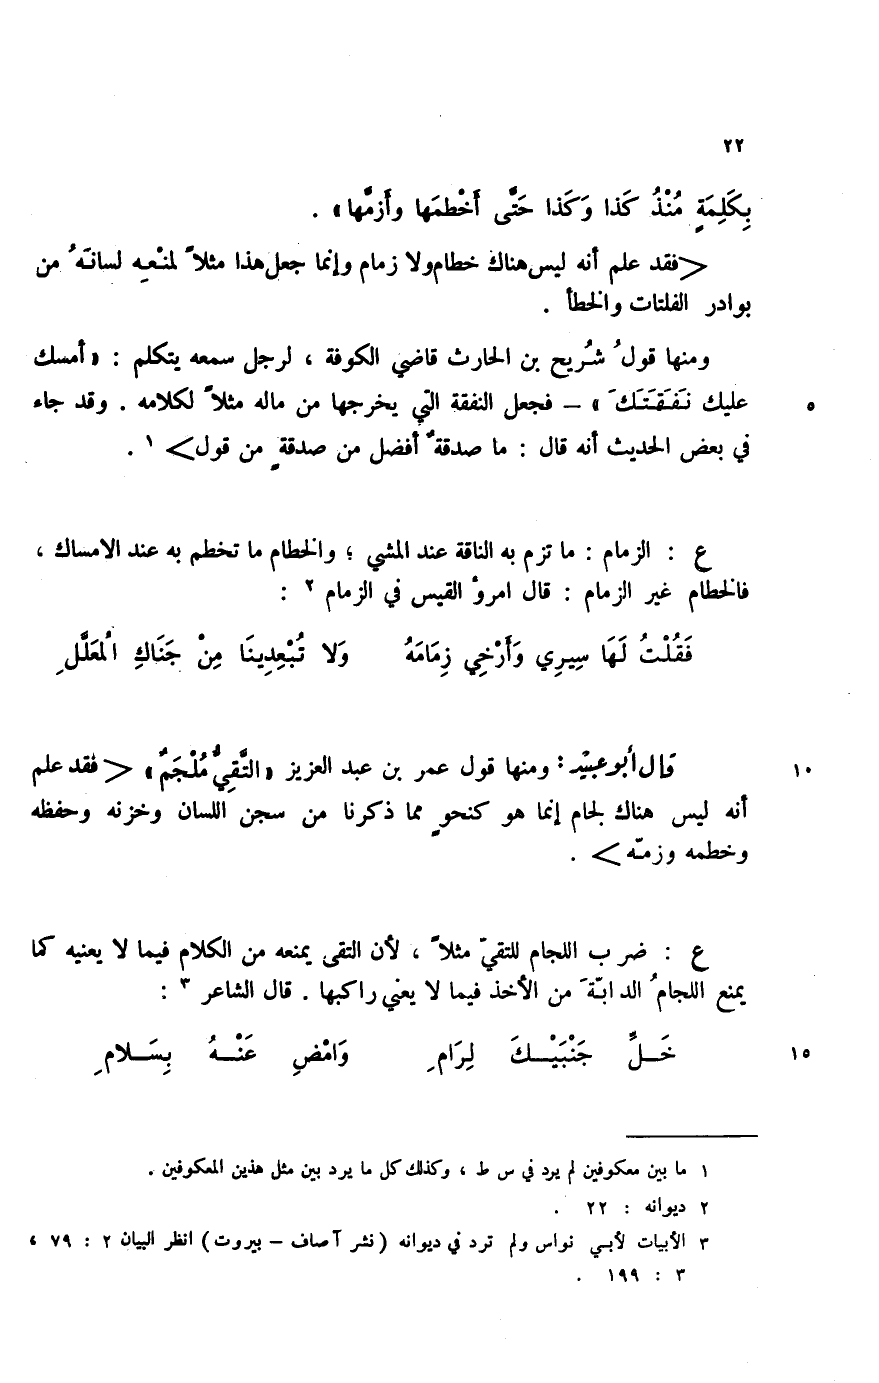 ٢٢
بِكَلِمَةٍ مُنْذُ كَذا وَكَذا حَتَّى أَخْطمَها وأَزمَّها» .
<فقد علم أنه ليس هناك خطام ولا زمام وإنما جعل هذا مثلاً لمنْعِه لسانَهُ من
بوادر الفلتات والخطأ .
ومنها قولُ شُريح بن الحارث قاضي الكوفة ، لرجل سمعه يتكلم : «أمسك
عليك نَفَقَتَكَ» – فجعل النفقة التي يخرجها من ماله مثلاً لكلامه . وقد جاء ٥
في بعض الحديث أنه قال : ما صدقةٌ أفضل من صدقةٍ من قول> ١ .
ع : الزمام : ما تزم به الناقة عند المشي ؛ والخطام ما تخطم به عند الامساك ،
فالخطام غير الزمام : قال امرؤ القيس في الزمام ٢ :
فَقُلْتُ لَهَا سِيرِي وَأَرْخِي زِمَامَهُ وَلا تُبْعِدِينَا مِنْ جَنَاكِ الْمُعَلَّلِ
قال أبو عبيد : ومنها قول عمر بن عبد العزيز «التَّقِيُّ مُلْجَمٌ» <فقد علم ١٠
أنه ليس هناك لجام إنما هو كنحوٍ مما ذكرنا من سجن اللسان وخزنه وحفظه
وخطمه وزمّه> .
ع : ضرب اللجام للتقيّ مثلاً ، لأن التقى يمنعه من الكلام فيما لا يعنيه كما
يمنع اللجامُ الدابّةَ من الأخذ فيما لا يعني راكبها . قال الشاعر ٣ :
خَلِّ جَنْبَيْكَ لِرَامِ وَامْضِ عَنْهُ بِسَلامِ ١٥
١ ما بين معكوفين لم يرد في س ط ، وكذلك كل ما يرد بين مثل هذين المعكوفين .
٢ ديوانه : ٢٢ .
٣ الأبيات لأبي نواس ولم ترد في ديوانه (نشر آصاف – بيروت) انظر البيان ٢ : ٧٩ ،
٣ : ١٩٩ .